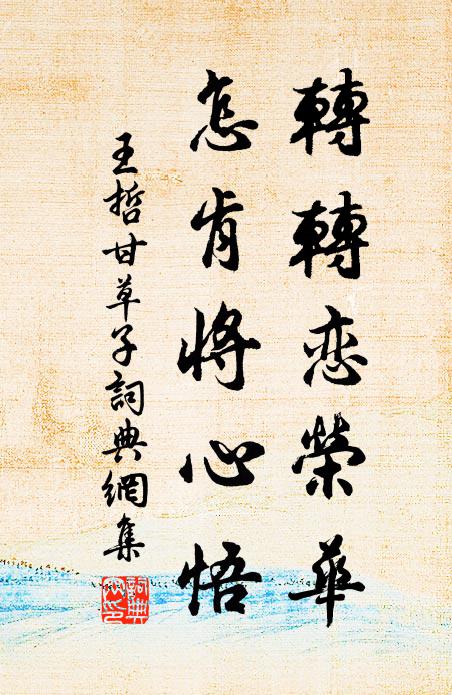 轉轉恋榮華
怎肯將心悟
王哲甘草子詞典網集